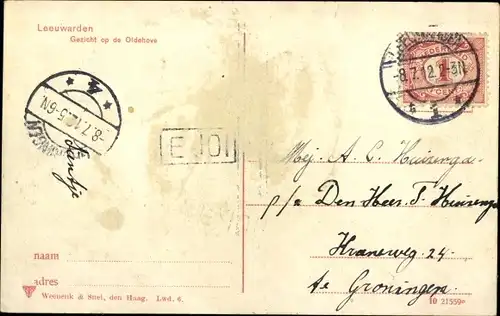 Leeuwarden
Gezicht op de Oldehove
-8.7.12.2-3N
1
4
-8.7.12.5-6N
Jantje
E 10
Mej. A. C. Huizenga
p/a Den Heer T. Huizenga
Kraneweg 24
te Groningen.
naam
adres
Weenenk & Snel, den Haag. Lwd. 6.
10 21559